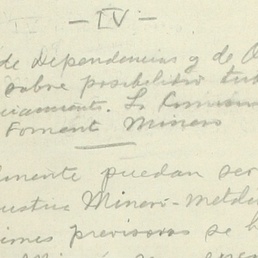 - IV -
de Dependencias y de O
sobre posibilidad
ciamiento. La Comisión
Foment Minero
mente puedan ser
ustria Minero-Metal
iones previsoras se h